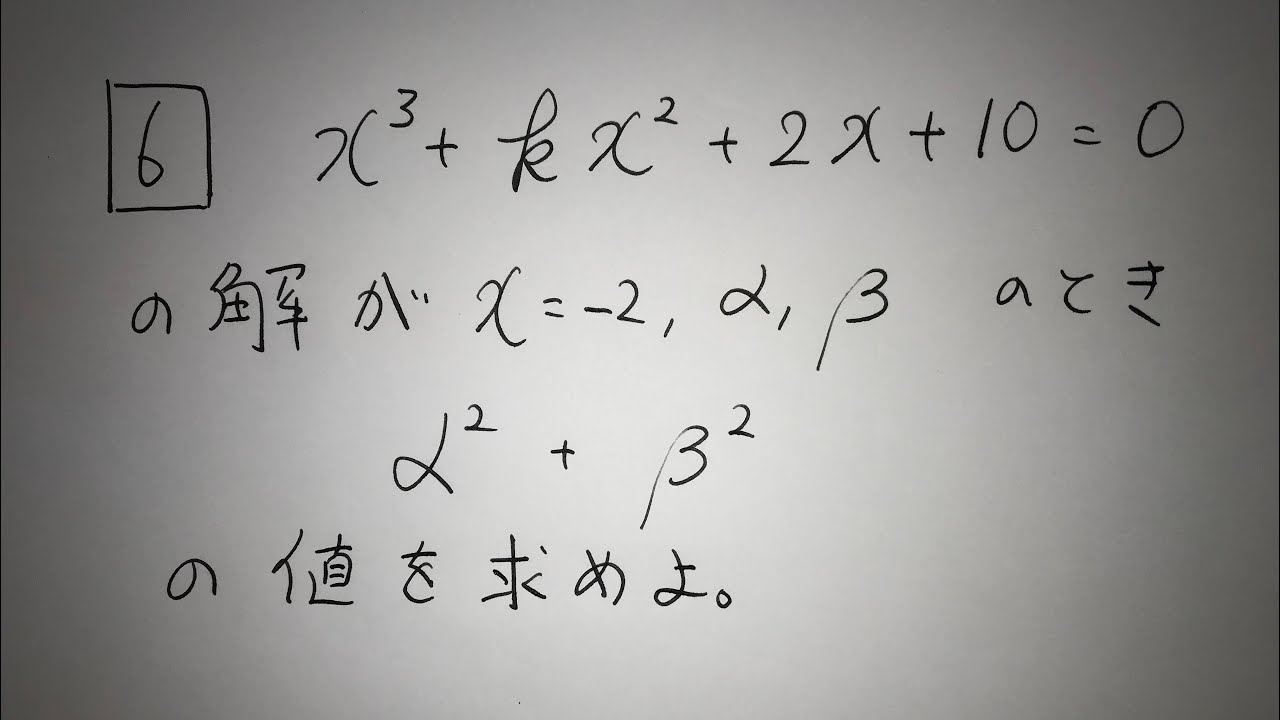 6 x³ + kx² + 2x + 10 = 0
の解が x = -2, α, β のとき
α² + β²
の値を求めよ。